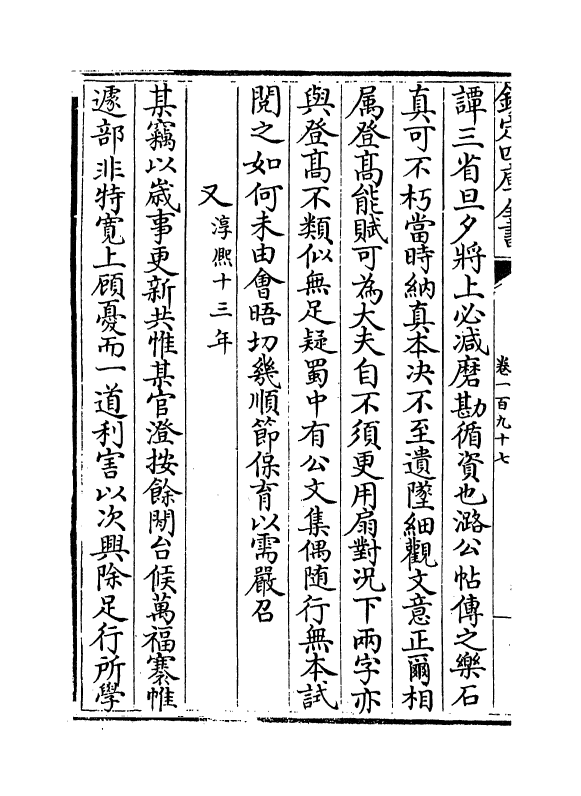 欽定四庫全書
卷一百九十七
譚三省旦夕將上必减磨勘循資也潞公帖傳之樂石
真可不朽當時納真本决不至遺墜細觀文意正爾相
属登髙能賦可為大夫自不須更用扇對况下兩字亦
與登髙不類似無足疑蜀中有公文集偶随行無本試
閱之如何未由會晤切㡬順節保育以需嚴召
又淳熈十三年
某竊以嵗事更新共惟某官澄按餘閒台候萬福褰帷
遽部非特寛上顧憂而一道利害以次興除足行所學